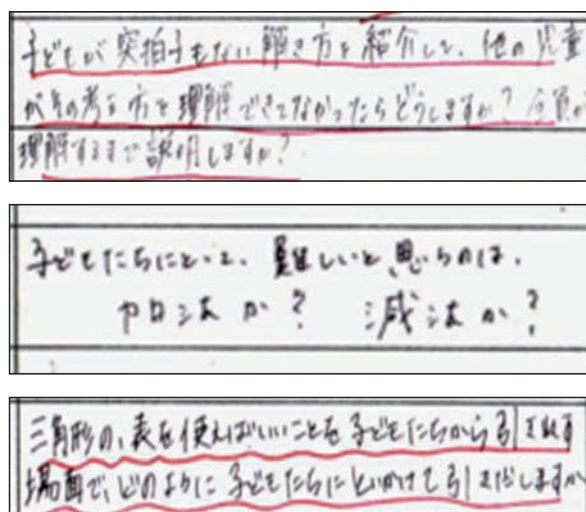 子どもが突拍子もない解き方を紹介して、他の児童
がその考え方を理解できてなかったらどうしますか？全員が
理解するまで説明しますか？
子どもたちにとって、難しいと思うのは、
加法か？ 減法か？
三角形の、表を使えばいいことを子どもたちから引き出す
場面で、どのように子どもたちにといかけて引きだしますか